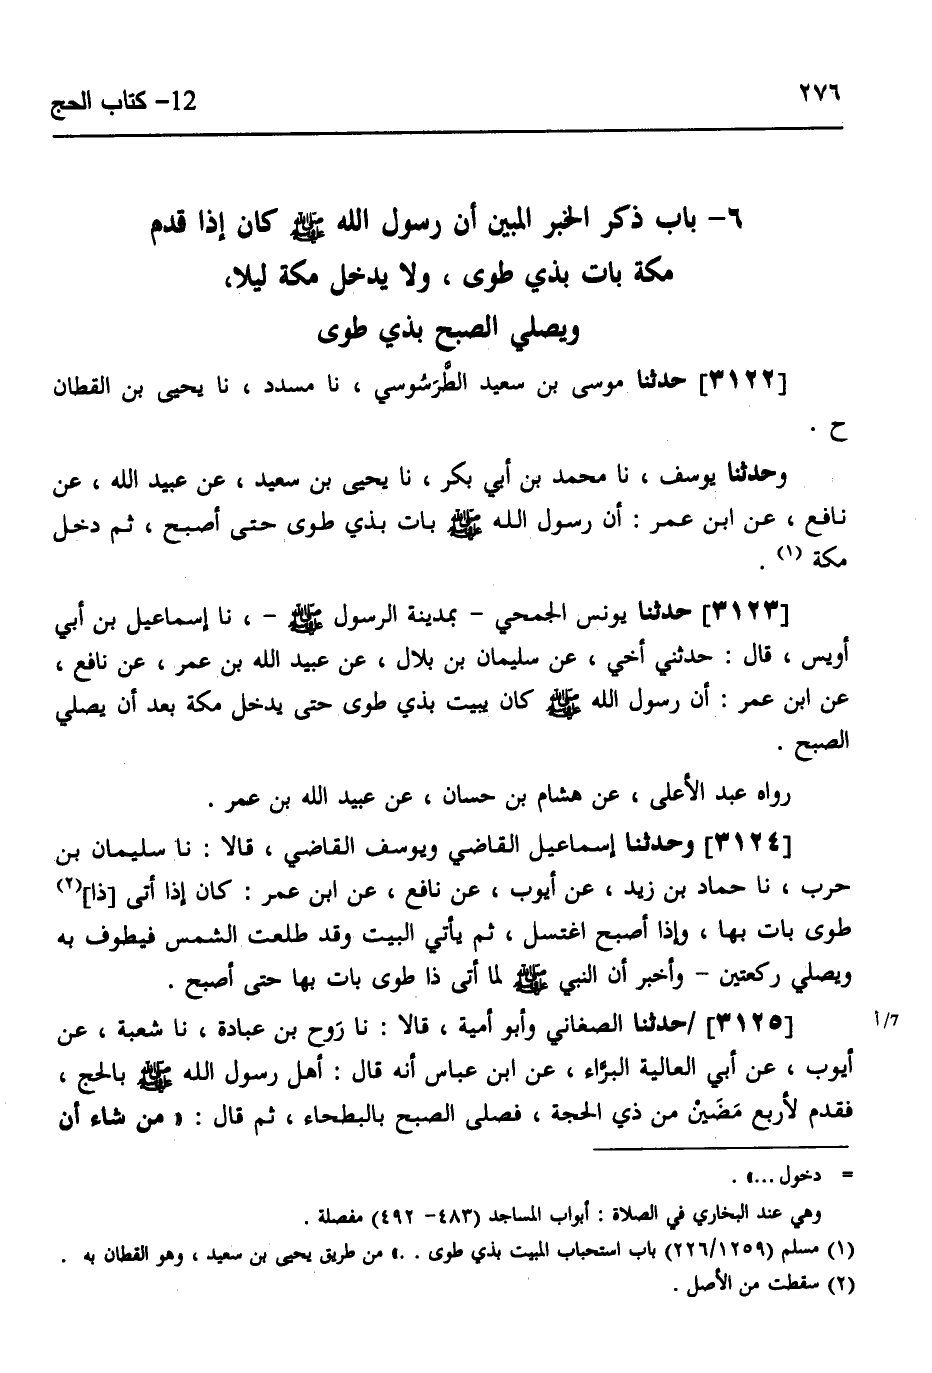 ٢٧٦
12- كتاب الحج
٦- باب ذكر الخبر المبين أن رسول الله ﷺ كان إذا قدم
مكة بات بذي طوى ، ولا يدخل مكة ليلا،
ويصلي الصبح بذي طوى
[٣١٢٢] حدثنا موسى بن سعيد الطَّرَسُوسي ، نا مسدد ، نا يحيى بن القطان
ح .
وحدثنا يوسف ، نا محمد بن أبي بكر ، نا يحيى بن سعيد ، عن عبيد الله ، عن
نافع ، عن ابن عمر : أن رسول الله ﷺ بات بذي طوى حتى أصبح ، ثم دخل
مكة (١) .
[٣١٢٣] حدثنا يونس الجمحي - بمدينة الرسول ﷺ - ، نا إسماعيل بن أبي
أويس ، قال : حدثني أخي ، عن سليمان بن بلال ، عن عبيد الله بن عمر ، عن نافع ،
عن ابن عمر : أن رسول الله ﷺ كان يبيت بذي طوى حتى يدخل مكة بعد أن يصلي
الصبح .
رواه عبد الأعلى ، عن هشام بن حسان ، عن عبيد الله بن عمر .
[٣١٢٤] وحدثنا إسماعيل القاضي ويوسف القاضي ، قالا : نا سليمان بن
حرب ، نا حماد بن زيد ، عن أيوب ، عن نافع ، عن ابن عمر : كان إذا أتى [ذا](٢)
طوى بات بها ، وإذا أصبح اغتسل ، ثم يأتي البيت وقد طلعت الشمس فيطوف به
ويصلي ركعتين - وأخبر أن النبي ﷺ لما أتى ذا طوى بات بها حتى أصبح .
[٣١٢٥] /حدثنا الصغاني وأبو أمية ، قالا : نا رَوح بن عبادة ، نا شعبة ، عن
٦/أ
أيوب ، عن أبي العالية البرَّاء ، عن ابن عباس أنه قال : أهل رسول الله ﷺ بالحج ،
فقدم لأربع مَضَيْنْ من ذي الحجة ، فصلى الصبح بالبطحاء ، ثم قال : « من شاء أن
= دخول ...» .
وهي عند البخاري في الصلاة : أبواب المساجد (٤٨٣- ٤٩٢) مفصلة .
(١) مسلم (٢٢٦/١٢٥٩) باب استحباب المبيت بذي طوى . .» من طريق يحيى بن سعيد ، وهو القطان به .
(٢) سقطت من الأصل .